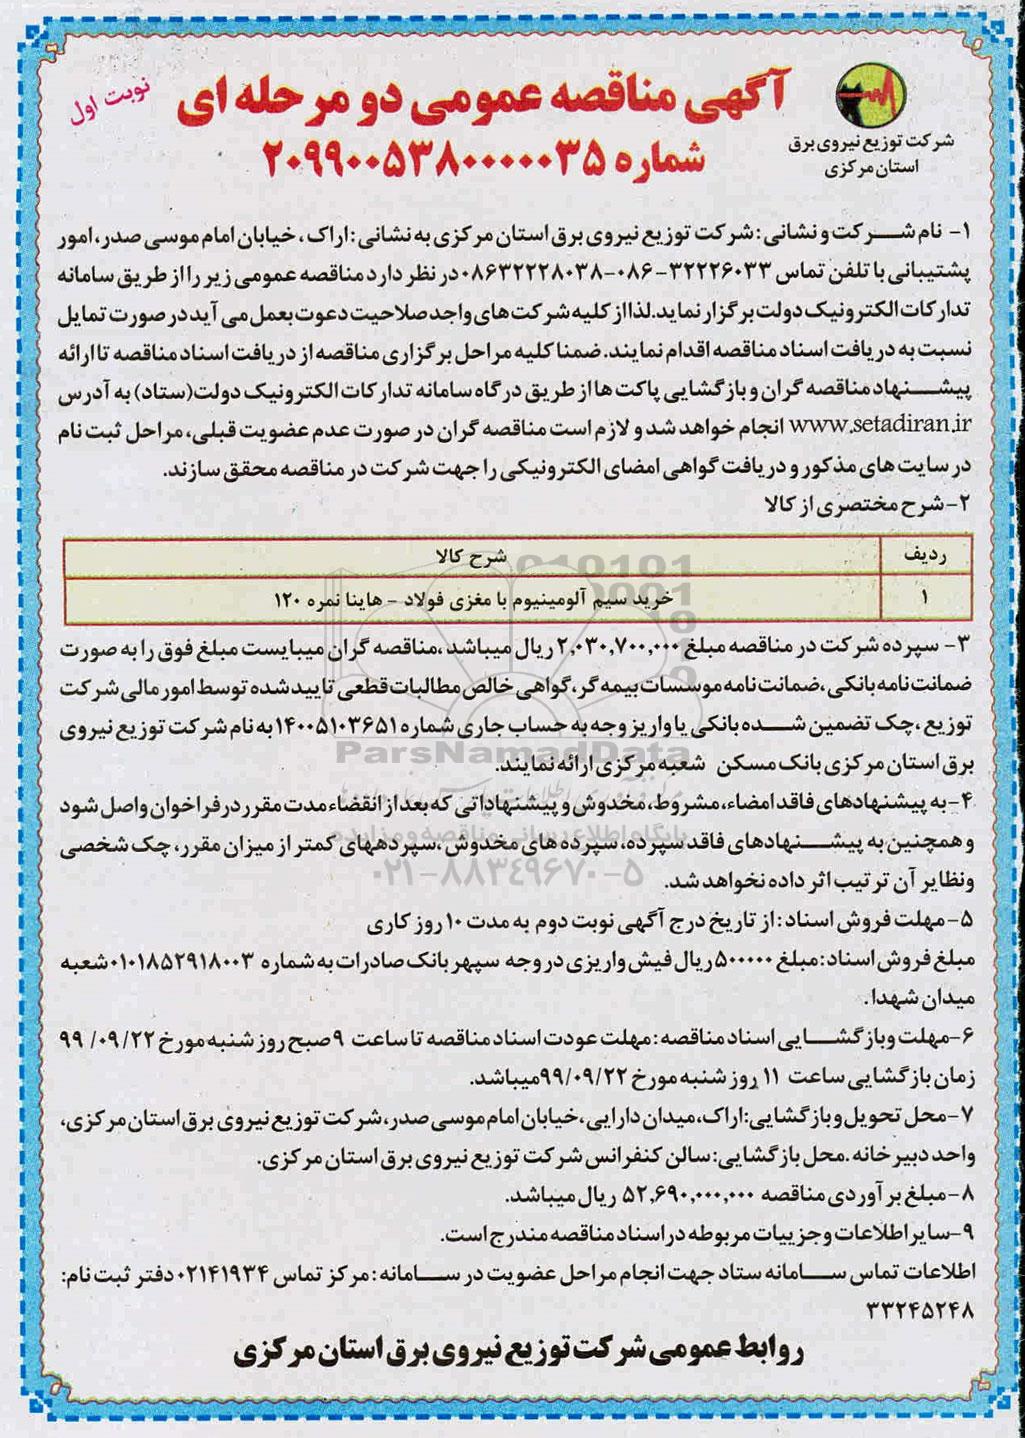 نوبت اول
آگهی مناقصه عمومی دو مرحله ای
شماره ۲۰۹۹۰۰۵۳۸۰۰۰۰۰۳۵
شرکت توزیع نیروی برق
استان مرکزی
۱- نام شرکت و نشانی : شرکت توزیع نیروی برق استان مرکزی به نشانی : اراک ، خیابان امام موسی صدر ، امور
پشتیبانی با تلفن تماس ۳۲۲۲۶۰۳۳-۰۸۶-۰۸۶۳۲۲۲۸۰۳۸ در نظر دارد مناقصه عمومی زیر را از طریق سامانه
تدارکات الکترونیک دولت برگزار نماید.لذا از کلیه شرکت های واجد صلاحیت دعوت بعمل می آید در صورت تمایل
نسبت به دریافت اسناد مناقصه اقدام نمایند. ضمنا کلیه مراحل برگزاری مناقصه از دریافت اسناد مناقصه تا ارائه
پیشنهاد مناقصه گران و بازگشایی پاکت ها از طریق درگاه سامانه تدارکات الکترونیک دولت(ستاد) به آدرس
www.setadiran.ir انجام خواهد شد و لازم است مناقصه گران در صورت عدم عضویت قبلی، مراحل ثبت نام
در سایت های مذکور و دریافت گواهی امضای الکترونیکی را جهت شرکت در مناقصه محقق سازند.
۲-شرح مختصری از کالا
ردیف شرح کالا
۱ خرید سیم آلومینیوم با مغزی فولاد - هاینا نمره ۱۲۰
۳- سپرده شرکت در مناقصه مبلغ ۲,۰۳۰,۷۰۰,۰۰۰ ریال میباشد ،مناقصه گران میبایست مبلغ فوق را به صورت
ضمانت نامه بانکی ،ضمانت نامه موسسات بیمه گر،گواهی خالص مطالبات قطعی تایید شده توسط امور مالی شرکت
توزیع ،چک تضمین شده بانکی یا واریز وجه به حساب جاری شماره ۱۴۰۰۵۱۰۳۶۵۱ به نام شرکت توزیع نیروی
برق استان مرکزی بانک مسکن شعبه مرکزی ارائه نمایند.
۴-به پیشنهادهای فاقد امضاء، مشروط، مخدوش و پیشنهاداتی که بعد از انقضاء مدت مقرر در فراخوان واصل شود
و همچنین به پیشنهادهای فاقد سپرده، سپرده های مخدوش ،سپردههای کمتر از میزان مقرر، چک شخصی
ونظایر آن ترتیب اثر داده نخواهد شد.
۵-مهلت فروش اسناد : از تاریخ درج آگهی نوبت دوم به مدت ۱۰ روز کاری
مبلغ فروش اسناد: مبلغ ۵۰۰۰۰۰ ریال فیش واریزی در وجه سپهر بانک صادرات به شماره ۰۱۰۱۸۵۲۹۱۸۰۰۳ شعبه
میدان شهدا.
۶-مهلت وبازگشایی اسناد مناقصه : مهلت عودت اسناد مناقصه تا ساعت ۹ صبح روز شنبه مورخ ۹۹/۰۹/۲۲
زمان بازگشایی ساعت ۱۱ روز شنبه مورخ ۹۹/۰۹/۲۲ میباشد.
۷-محل تحویل و بازگشایی: اراک، میدان دارایی، خیابان امام موسی صدر، شرکت توزیع نیروی برق استان مرکزی،
واحد دبیرخانه .محل بازگشایی: سالن کنفرانس شرکت توزیع نیروی برق استان مرکزی.
۸-مبلغ برآوردی مناقصه ۵۲,۶۹۰,۰۰۰,۰۰۰ ریال میباشد.
۹-سایر اطلاعات و جزییات مربوطه در اسناد مناقصه مندرج است.
اطلاعات تماس سامانه ستاد جهت انجام مراحل عضویت در سامانه : مرکز تماس ۰۲۱۴۱۹۳۴ دفتر ثبت نام:
۳۳۲۴۵۲۴۸
روابط عمومی شرکت توزیع نیروی برق استان مرکزی
ParsNamadData
پایگاه اطلاع رسانی مناقصه و مزایده
۰۲۱-۸۸۳۴۹۶۷۰-۵